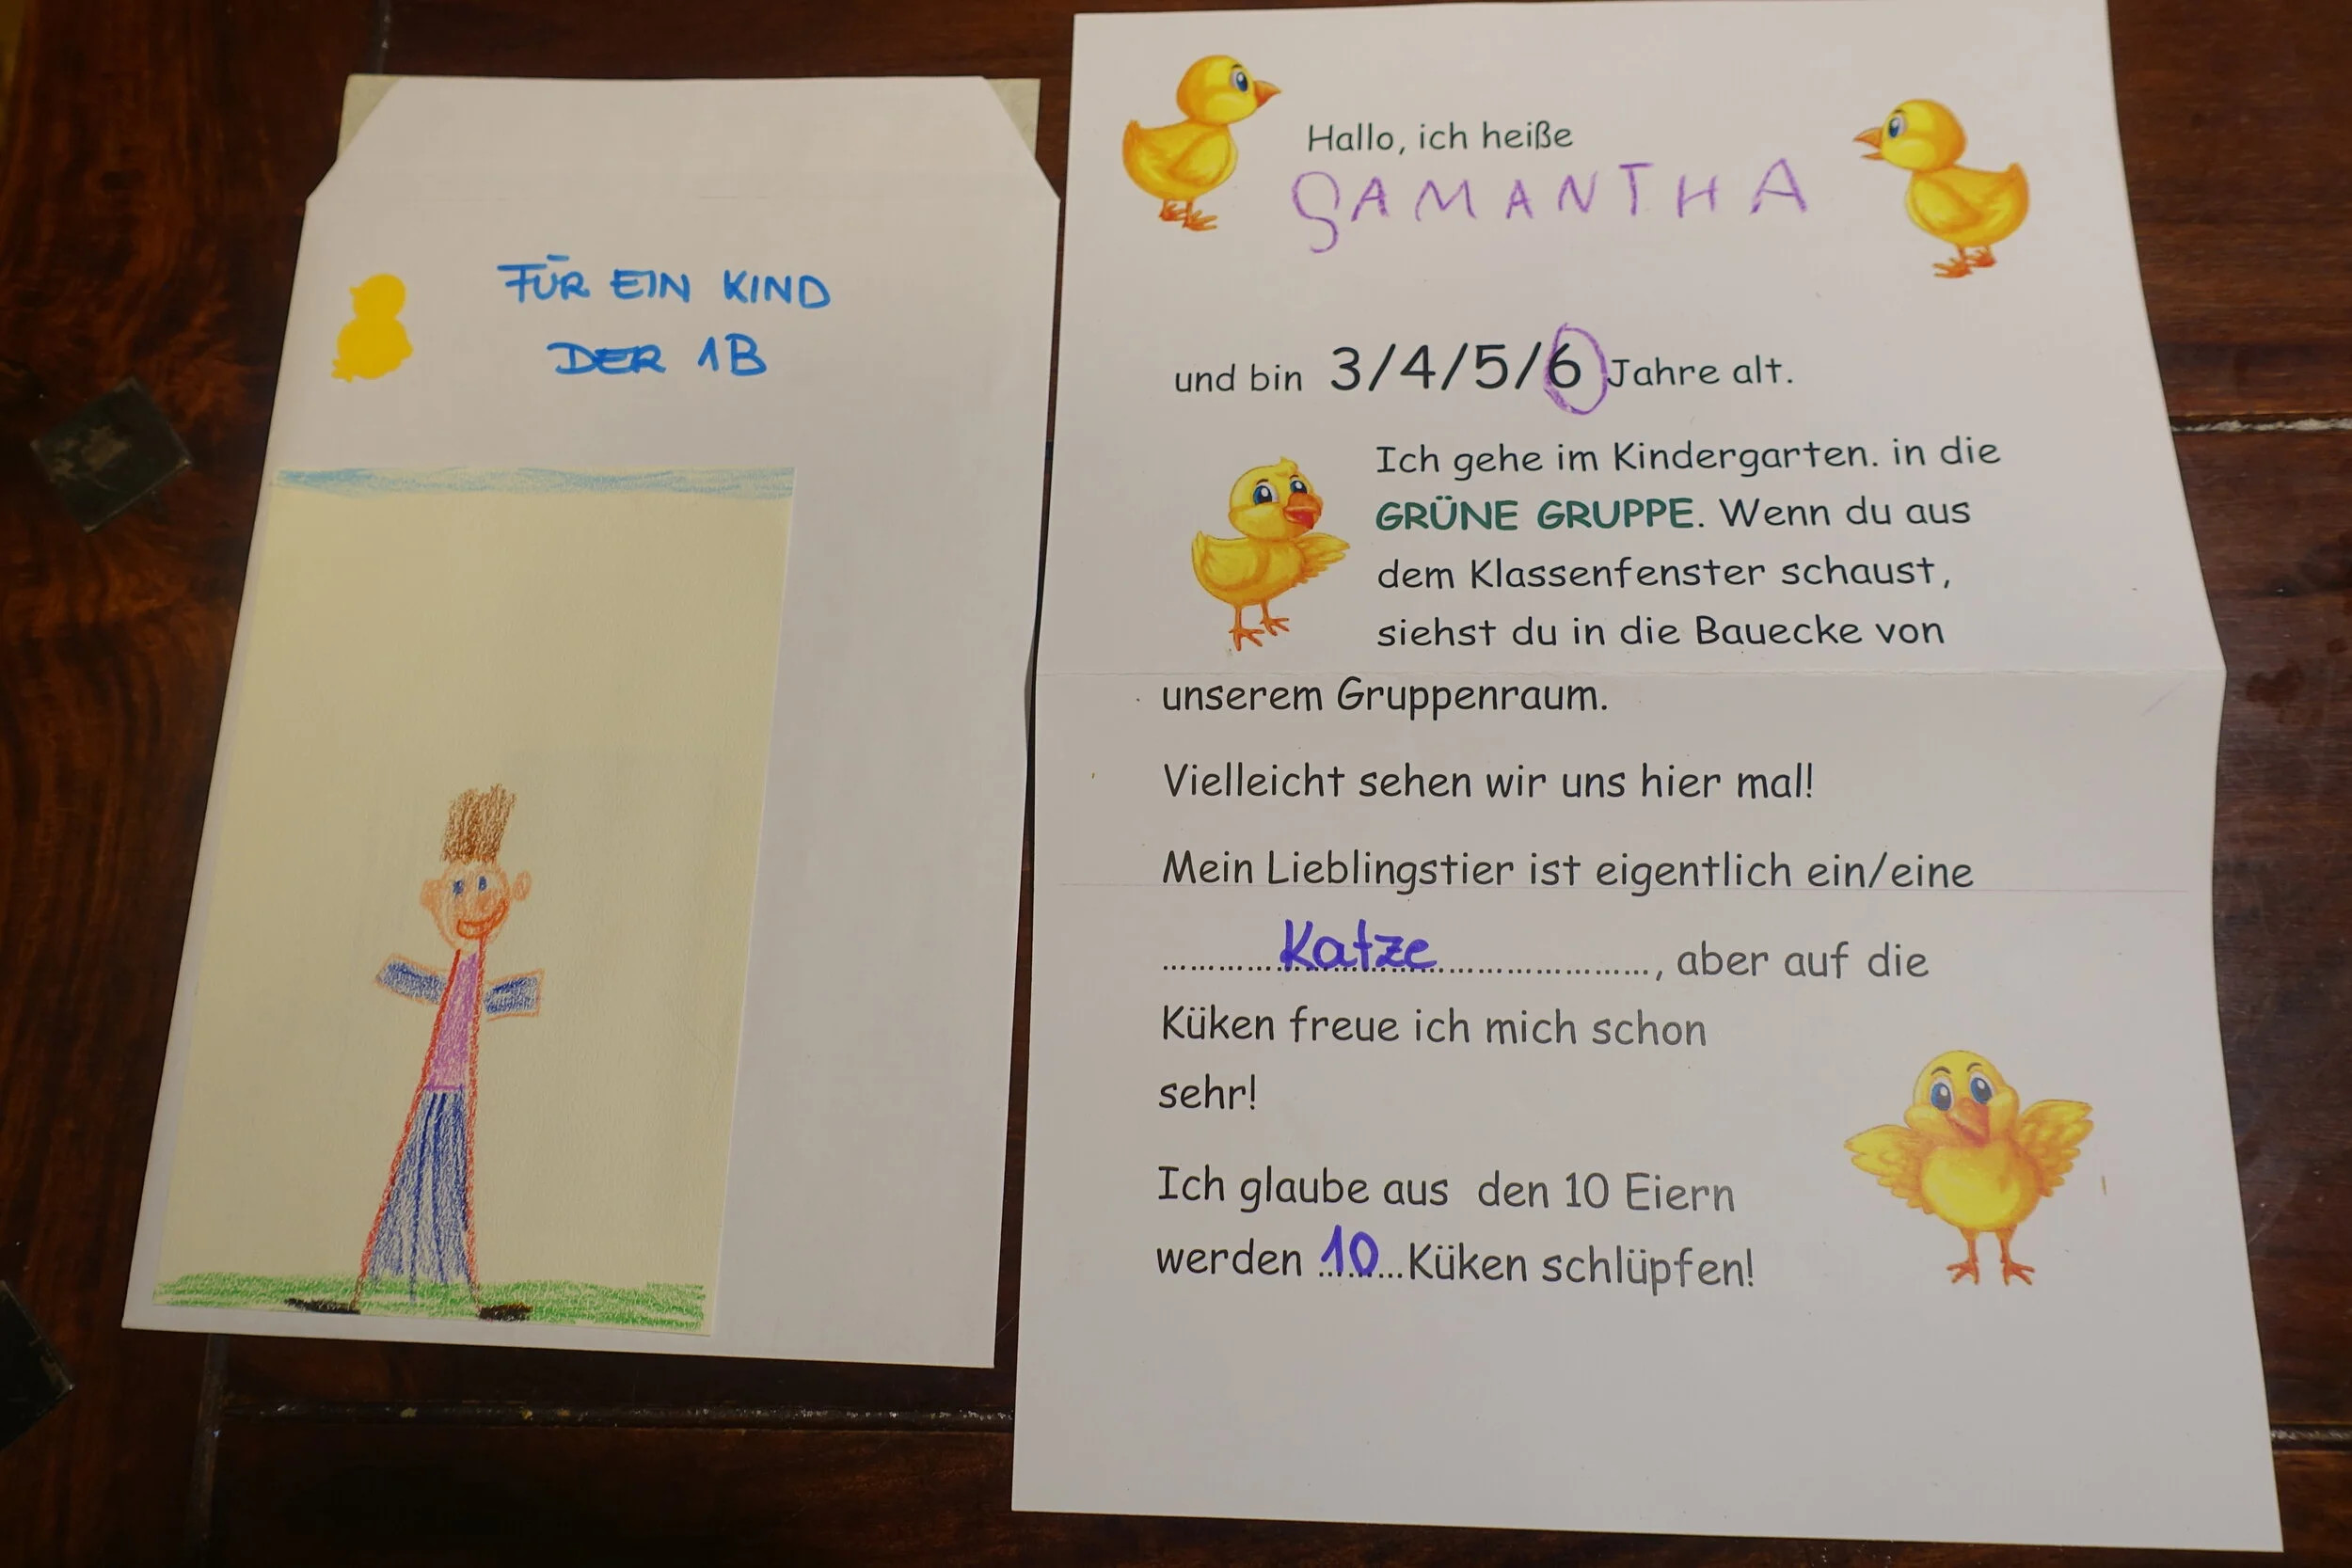 FÜR EIN KIND
DER 1B
Hallo, ich heiße
SAMANTHA
und bin 3/4/5/6 Jahre alt.
Ich gehe im Kindergarten. in die
GRÜNE GRUPPE. Wenn du aus
dem Klassenfenster schaust,
siehst du in die Bauecke von
unserem Gruppenraum.
Vielleicht sehen wir uns hier mal!
Mein Lieblingstier ist eigentlich ein/eine
Katze, aber auf die
Küken freue ich mich schon
sehr!
Ich glaube aus den 10 Eiern
werden 10 Küken schlüpfen!